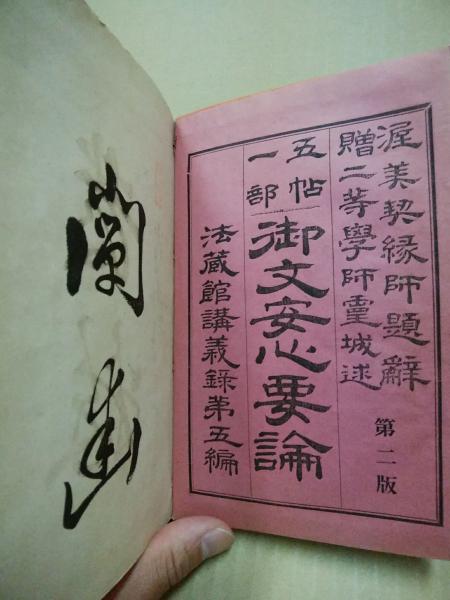 渥美契縁師題辭
贈二等學師霊城述
第二版
五帖
一部
御文安心要論
法蔵館講義錄第五編